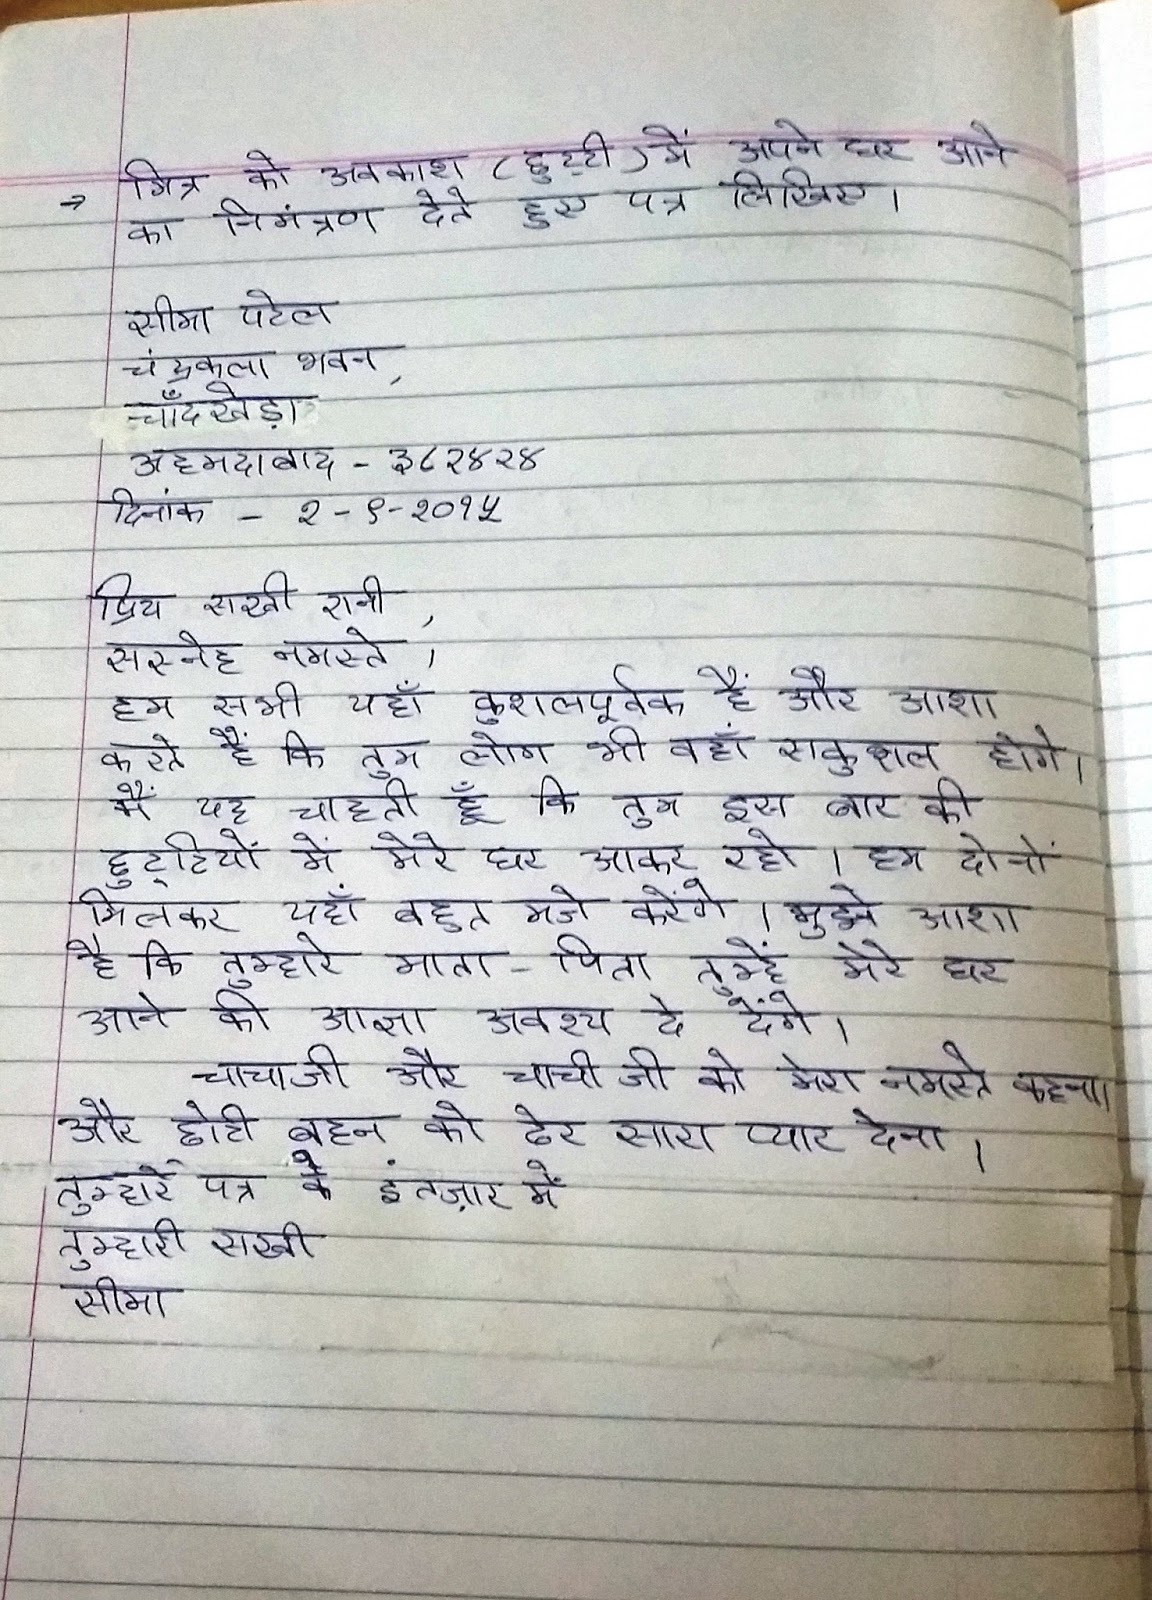 → मित्र को अवकाश (छुट्टी) में अपने घर आने
का निमंत्रण देते हुए पत्र लिखिए।
सीमा पटेल
चंद्रकला भवन,
चाँदखेड़ा
अहमदाबाद - ३८२४२४
दिनांक - २-९-२०१५
प्रिय सखी रानी,
सस्नेह नमस्ते।
हम सभी यहाँ कुशलपूर्वक हैं और आशा
करते हैं कि तुम लोग भी वहाँ सकुशल होगे।
मैं यह चाहती हूँ कि तुम इस बार की
छुट्टियों में मेरे घर आकर रहो। हम दोनों
मिलकर यहाँ बहुत मजे करेंगे। मुझे आशा
है कि तुम्हारे माता-पिता तुम्हें मेरे घर
आने की आज्ञा अवश्य दे देंगे।
चाचाजी और चाची जी को मेरा नमस्ते कहना।
और छोटी बहन को ढेर सारा प्यार देना।
तुम्हारे पत्र के इंतज़ार में
तुम्हारी सखी
सीमा